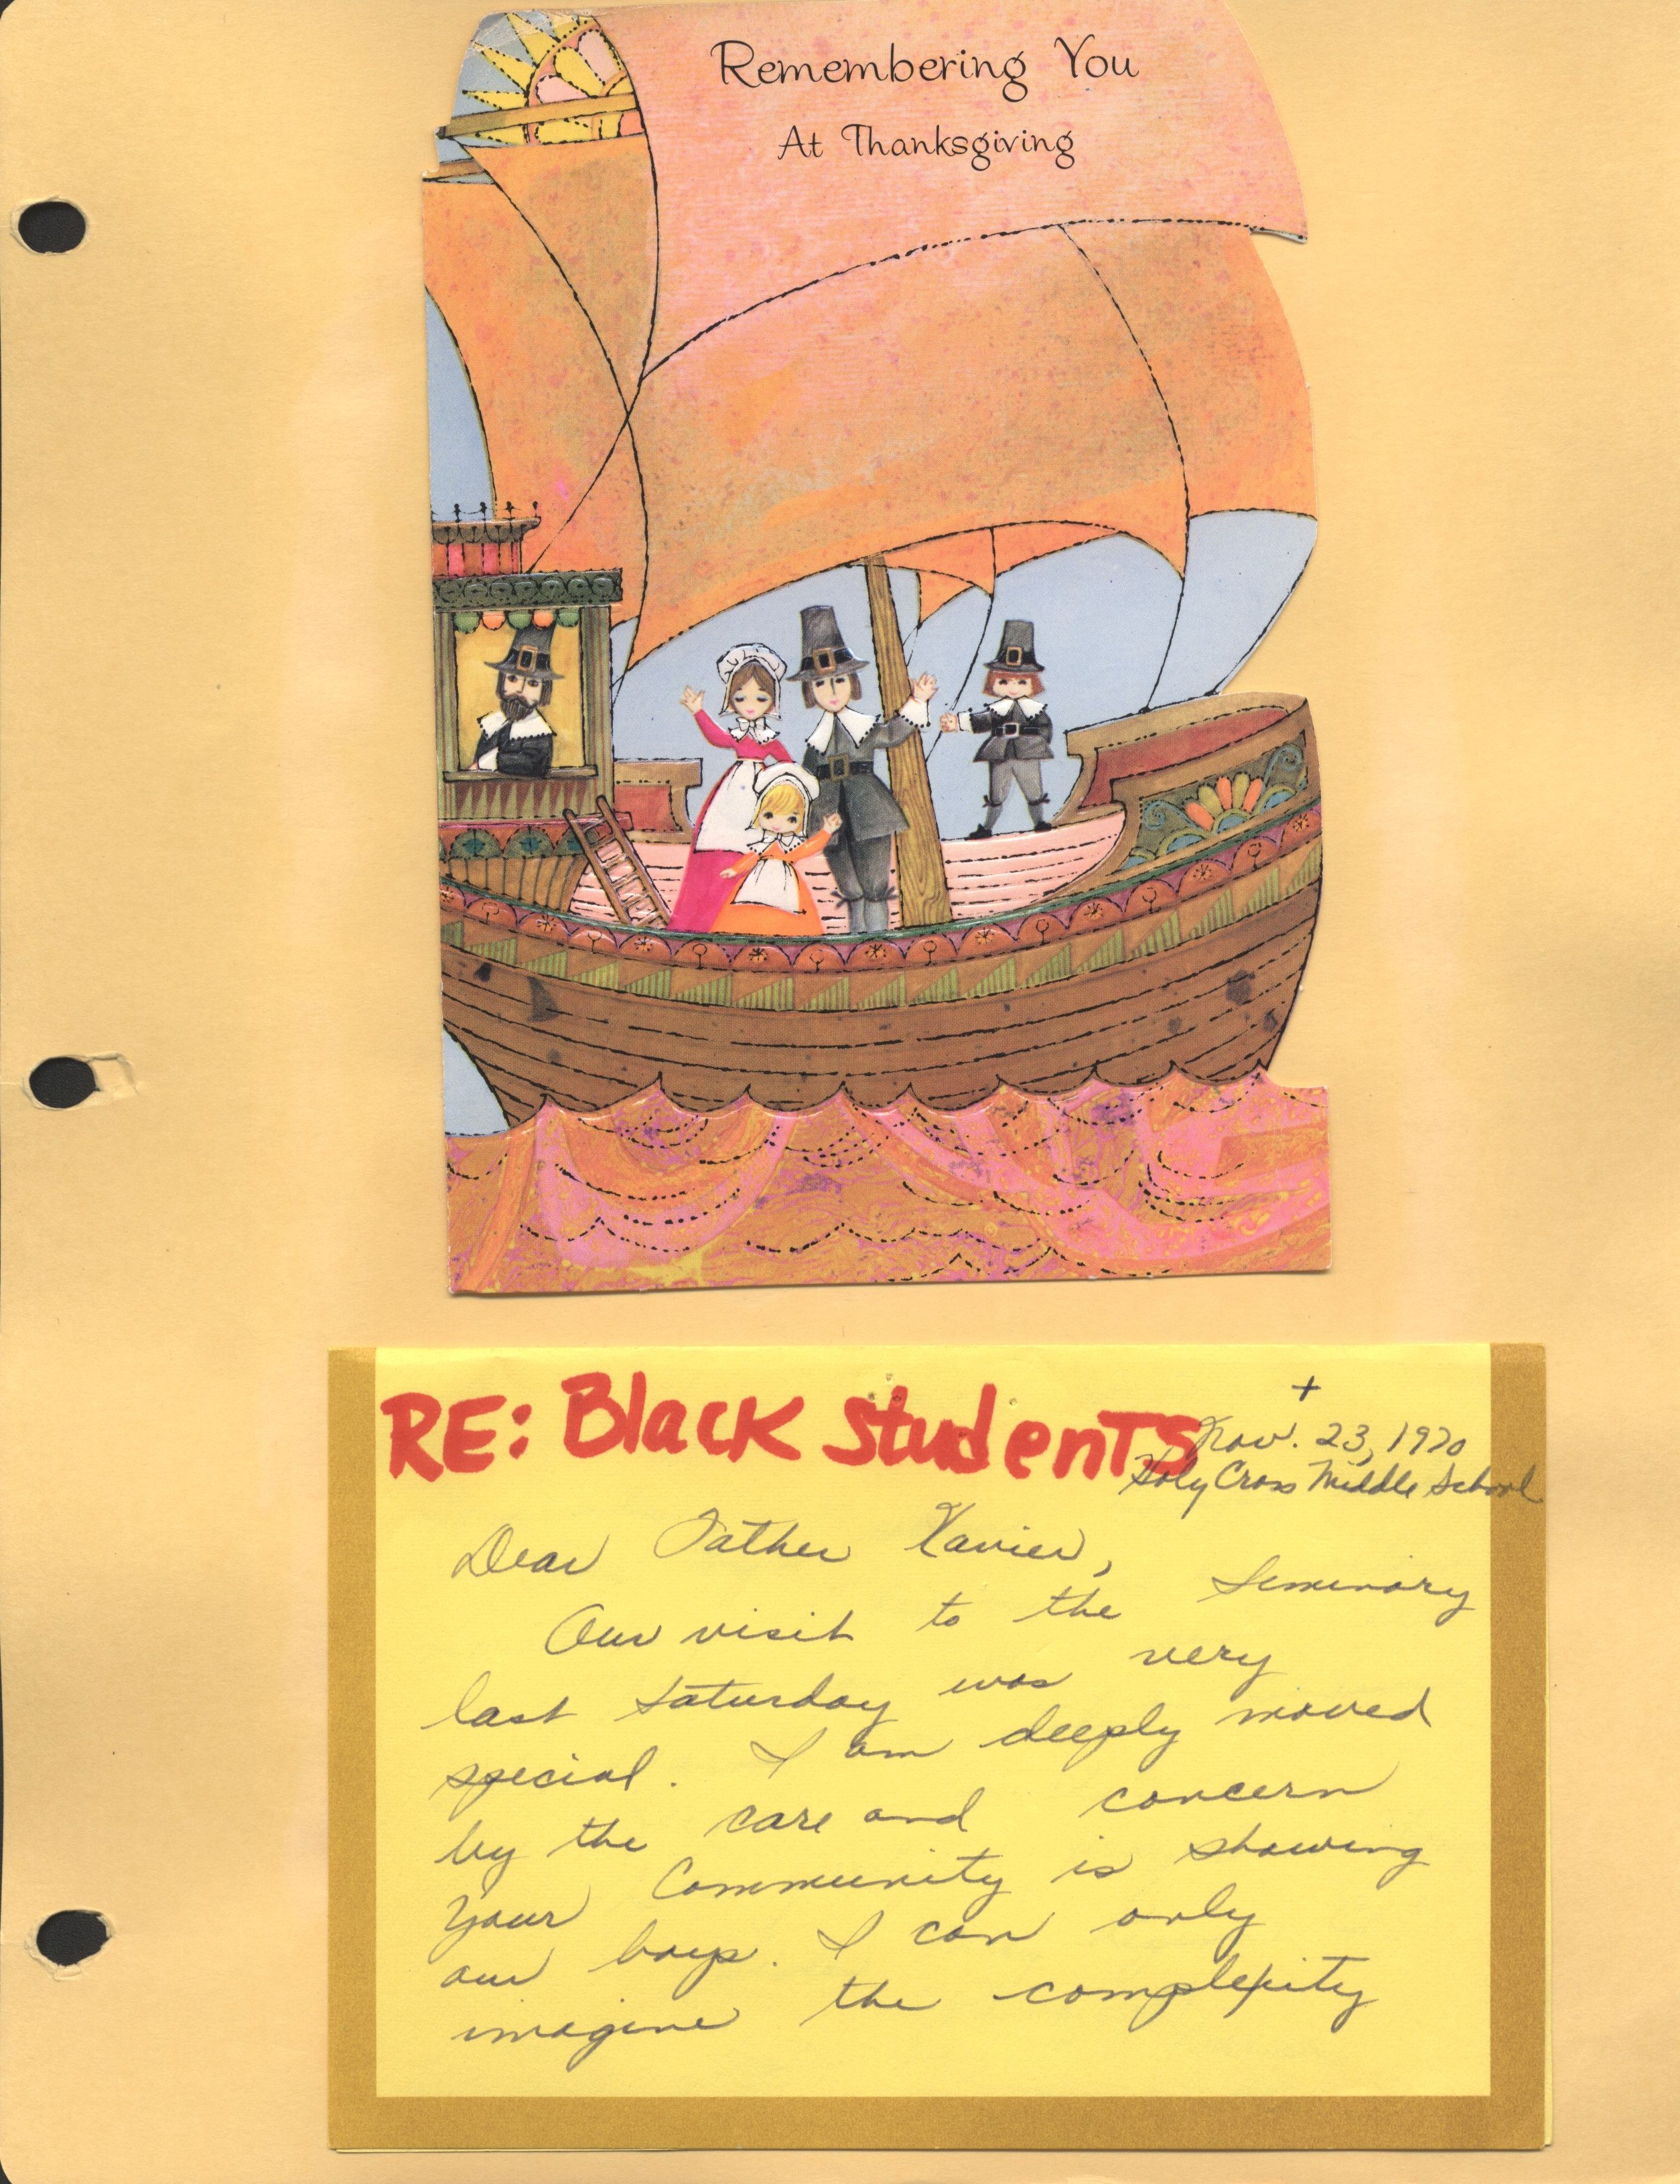 Remembering You
At Thanksgiving
RE: Black Students
+
Nov. 23, 1970
Holy Cross Middle School
Dear Father Xavier,
Our visit to the Seminary
last Saturday was very
special. I am deeply moved
by the care and concern
your Community is showing
our boys. I can only
imagine the complexity